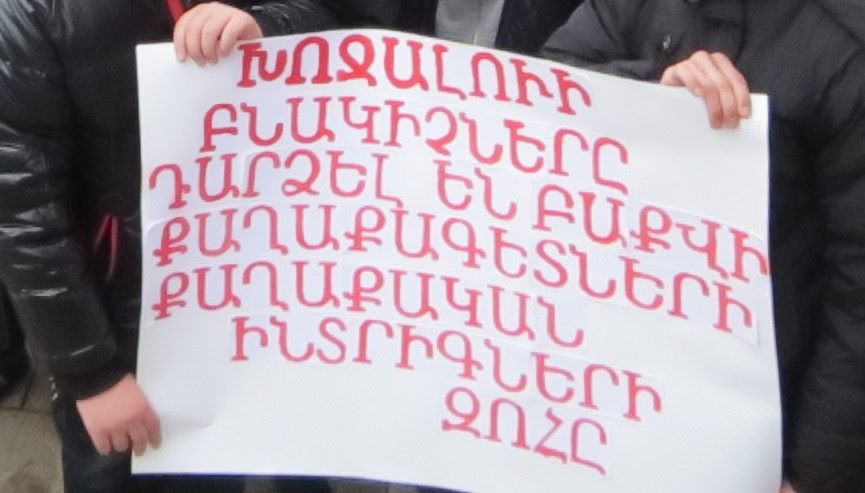 ԽՈՋԱԼՈՒԻ
ԲՆԱԿԻՉՆԵՐԸ
ԴԱՐՁԵԼ ԵՆ ԲԱՔՎԻ
ՔԱՂԱՔԱԳԵՏՆԵՐԻ
ՔԱՂԱՔԱԿԱՆ
ԻՆՏՐԻԳՆԵՐԻ
ԶՈՀԸ